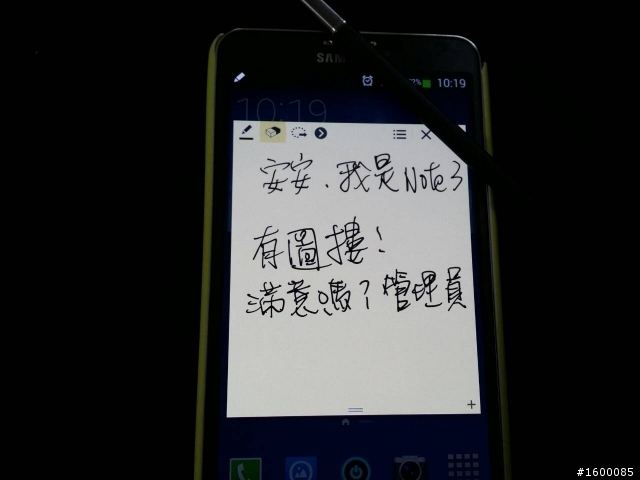 SAM
10:19
10:19
安安.我是Note3
有圖摟!
滿意嗎?管理員
#1600085